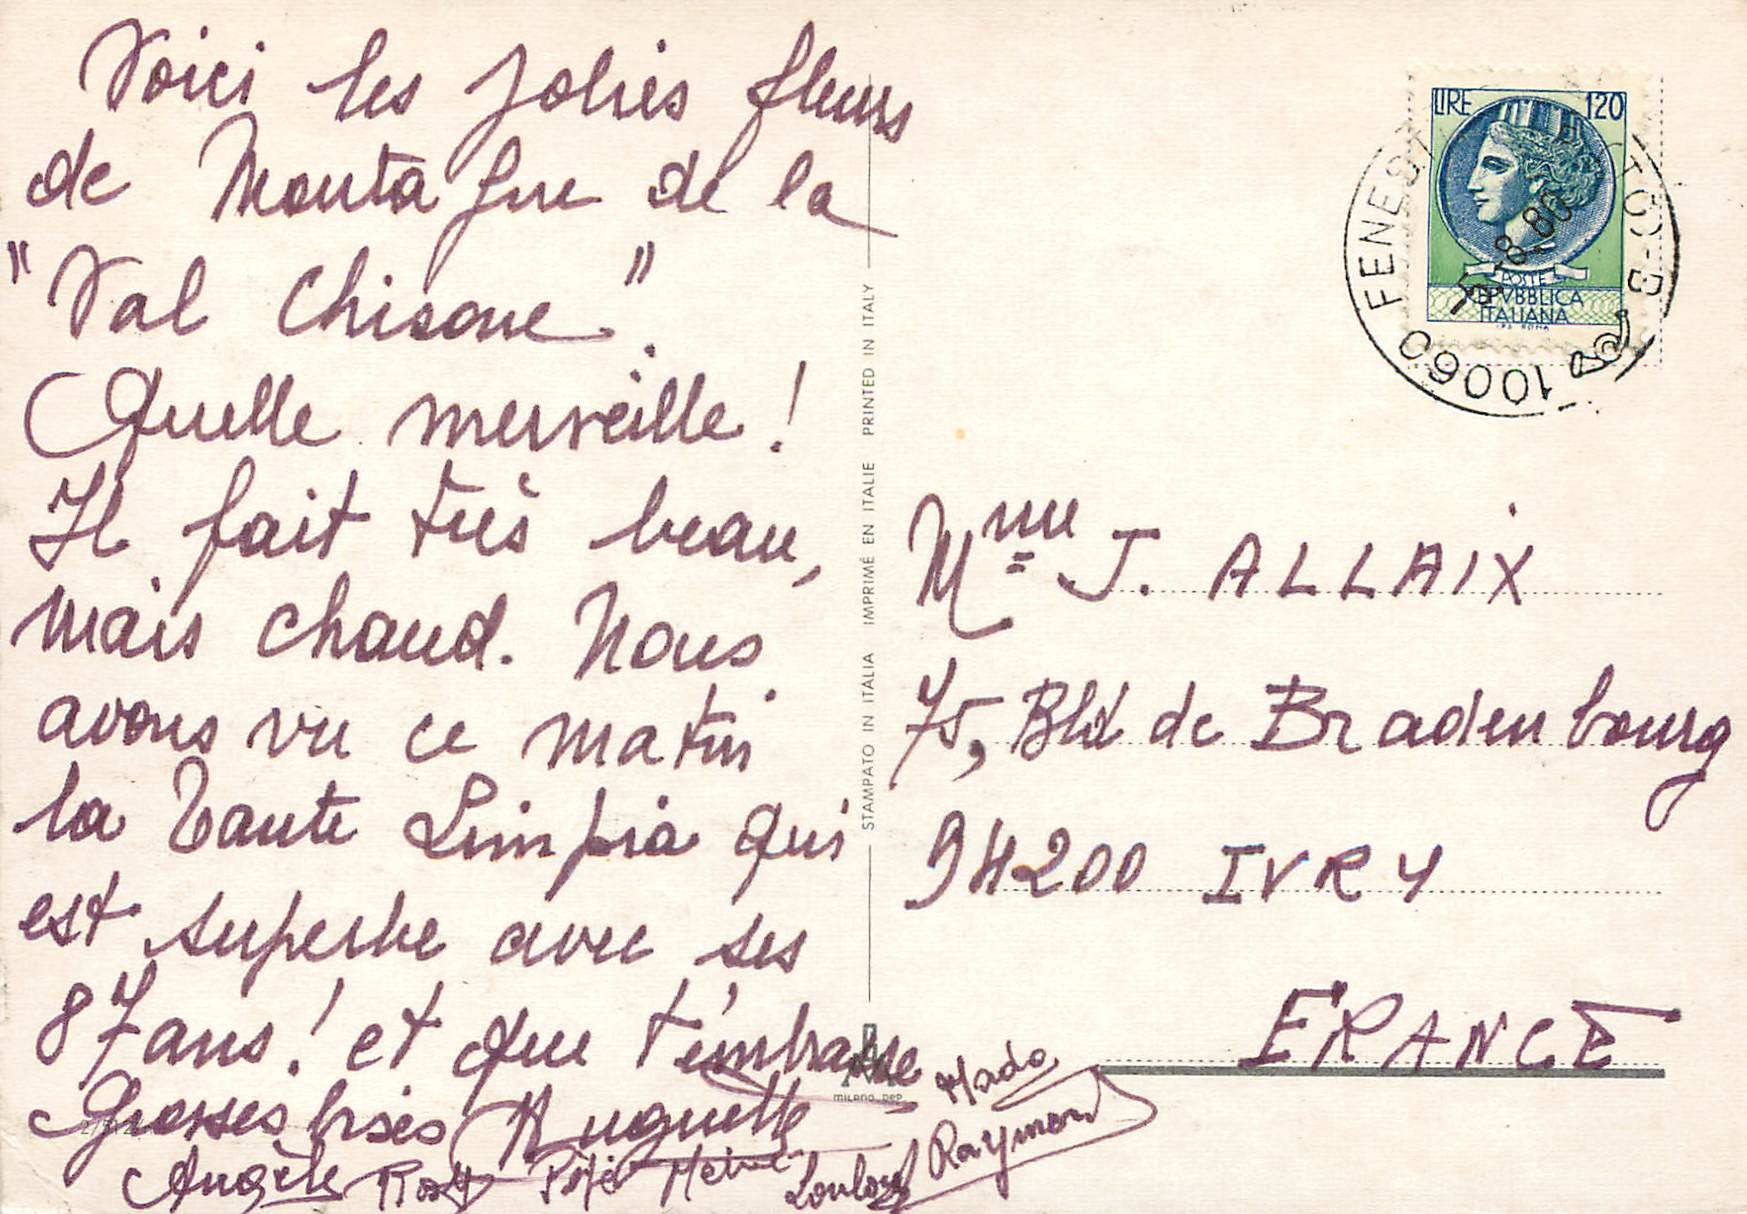 Voici les Jolies fleurs
de Montagne de la
"Val Chisone".
Quelle merveille!
Il fait très beau,
mais chaud. Nous
avons vu ce matin
la Tante Limpia qui
est superbe avec ses
87 ans! et que t'embrasse
Grosses bises Huguette
Angèle
Loulou
Mado
Raymond
STAMPATO IN ITALIA IMPRIMÉ EN ITALIE PRINTED IN ITALY
MILANO DEP.
LIRE 120
POSTE
REPVBBLICA
ITALIANA
I.P.S. ROMA
10060 FENEST
(TO) B
8.80
Mme J. ALLAIX
75, Bld de Bradenbourg
94200 IVRY
FRANCE